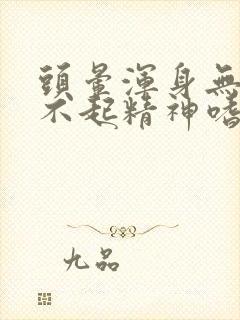 頭暈渾身無
不起精神嗜
九品